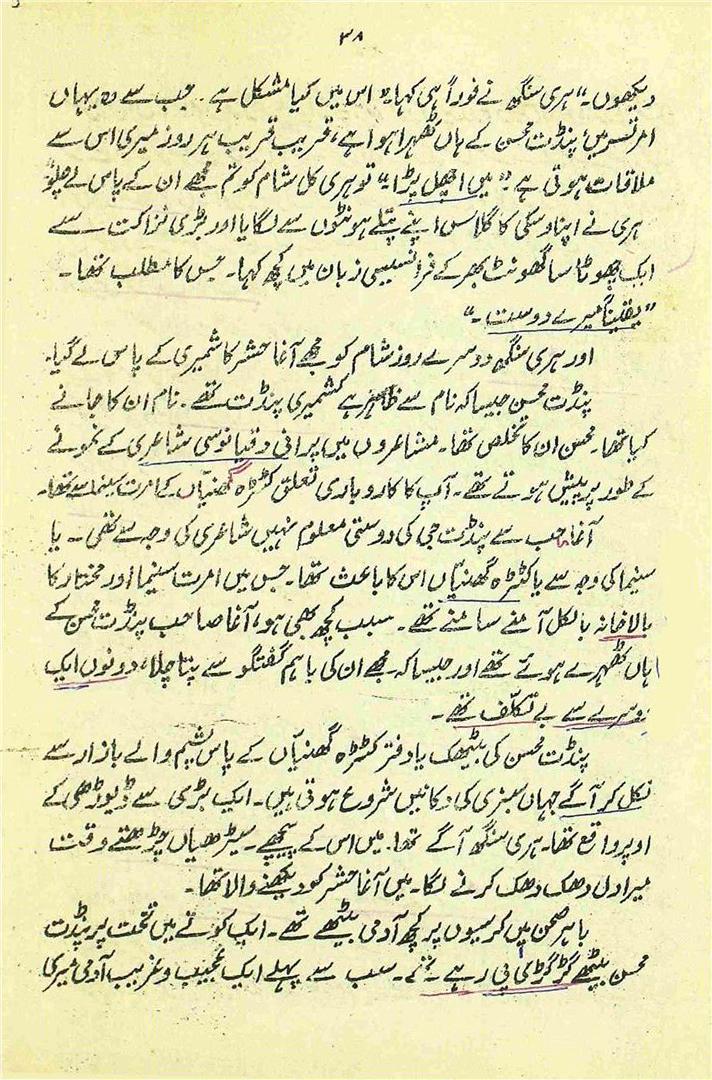 ۳۸
دیکھوں۔" ہری سنگھ نے فوراً ہی کہا۔" اس میں کیا مشکل ہے۔ جب سے وہ یہاں
امرتسر میں پنڈت محسن کے ہاں ٹھہرا ہوا ہے، قریب قریب ہر روز میری اس سے
ملاقات ہوتی ہے۔" میں اچھل پڑا۔" تو ہری کل شام کو تم مجھے ان کے پاس لے چلو"
ہری نے اپنا وسکی کا گلاس اپنے پتلے ہونٹوں سے لگایا اور بڑی نزاکت سے
ایک چھوٹا سا گھونٹ بھر کے فرانسیسی زبان میں کچھ کہا۔ جس کا مطلب تھا۔
"یقیناً میرے دوست۔"
اور ہری سنگھ دوسرے روز شام کو مجھے آغا حشر کاشمیری کے پاس لے گیا۔
پنڈت محسن جیسا کہ نام سے ظاہر ہے کشمیری پنڈت تھے۔ نام ان کا جانے
کیا تھا۔ محسن ان کا تخلص تھا۔ مشاعروں میں پرانی دقیانوسی شاعری کے نمونے
کے طور پر پیش ہوتے تھے۔ آپ کا کاروباری تعلق کٹڑہ گھنیاں کے امرت سینما سے تھا۔
آغا صاحب سے پنڈت جی کی دوستی معلوم نہیں شاعری کی وجہ سے تھی۔ یا
سینما کی وجہ سے یا کٹڑہ گھنیاں اس کا باعث تھا۔ جس میں امرت سنیما اور مختار کا
بالاخانہ بالکل آمنے سامنے تھے۔ سبب کچھ بھی ہو، آغا صاحب پنڈت محسن کے
ہاں ٹھہرے ہوئے تھے اور جیسا کہ مجھے ان کی باہم گفتگو سے پتا چلا، دونوں ایک
دوسرے سے بے تکلّف تھے۔
پنڈت محسن کی بیٹھک یا دفتر کٹڑہ گھنیاں کے پاس پشیم والے بازار سے
نکل کر آگے جہاں سبزی کی دکانیں شروع ہوتی ہیں۔ ایک بڑی سے ڈیوڑھی کے
اوپر واقع تھا۔ ہری سنگھ آگے تھا۔ میں اس کے پیچھے۔ سیڑھیاں چڑھتے وقت
میرا دل دھک دھک کرنے لگا۔ میں آغا حشر کو دیکھنے والا تھا۔
باہر صحن میں کرسیوں پر کچھ آدمی بیٹھے تھے۔ ایک کونے میں تخت پر پنڈت
محسن بیٹھے گڑگڑی پی رہے تھے۔ سب سے پہلے ایک عجیب و غریب آدمی میری